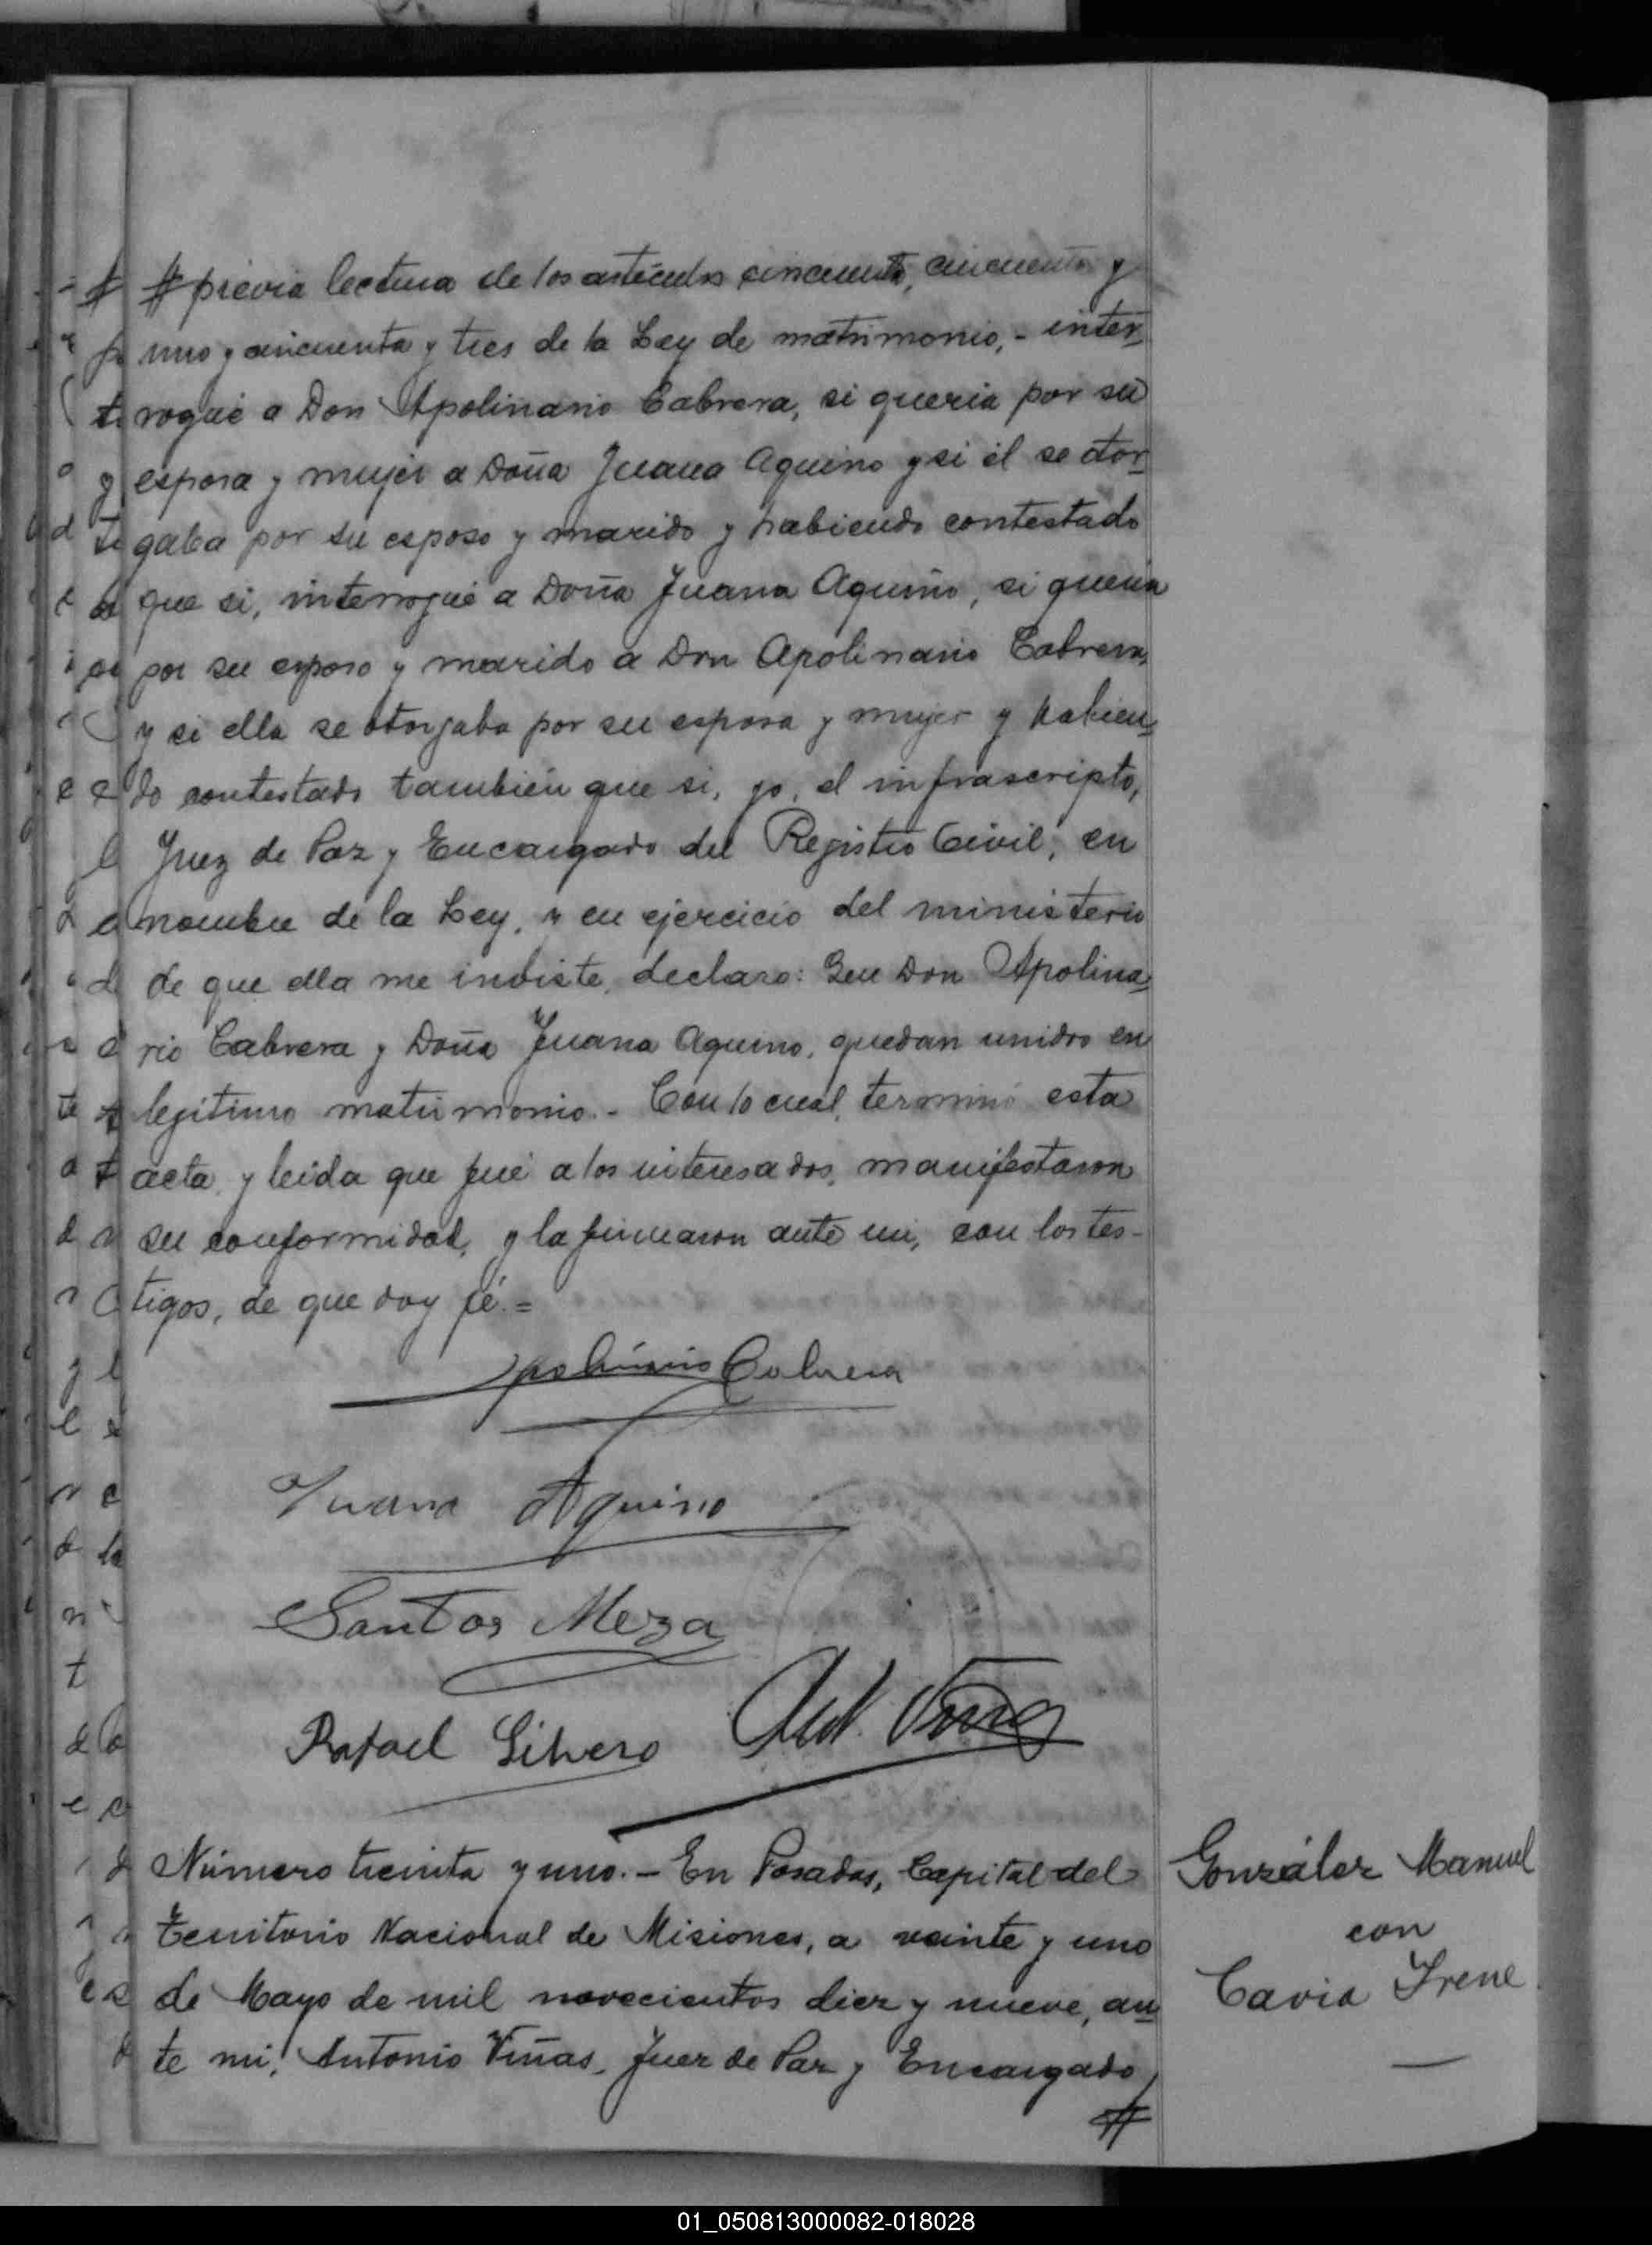 # previa lectura de los artículos cincuenta, cincuenta y
uno y cincuenta y tres de la Ley de matrimonio, - inter
rogué a Don Apolinario Cabrera, si queria por su
esposa y mujer a Doña Juana Aquino y si él se otor
gaba por su esposo y marido y habiendo contestado
que si, interrogué a Doña Juana Aquino, si queria
por su esposo y marido a Don Apolinario Cabrera,
y si ella se otorgaba por su esposa y mujer y habien
do contestado también que si, yo, el infrascripto,
Juez de Paz y Encargado del Registro Civil, en
nombre de la Ley, y en ejercicio del ministerio
de que ella me inviste, declaro: Que Don Apolina
rio Cabrera y Doña Juana Aquino, quedan unidos en
legitimo matrimonio. - Con lo cual, terminó esta
acta, y leida que fué a los interesados, manifestaron
su conformidad, y la firmaron ante mi, con los tes-
tigos, de que doy fé. =
Apolinario Cabrera
Juana Aquino
Santos Meza
Rafael Silvero Ant. Viñas
Número treinta y uno. - En Posadas, Capital del
Territorio Nacional de Misiones, a veinte y uno
de Mayo de mil novecientos diez y nueve, an
te mi, Antonio Viñas, Juez de Paz y Encargado
#
González Manuel
con
Cavia Irene
01_050813000082-018028